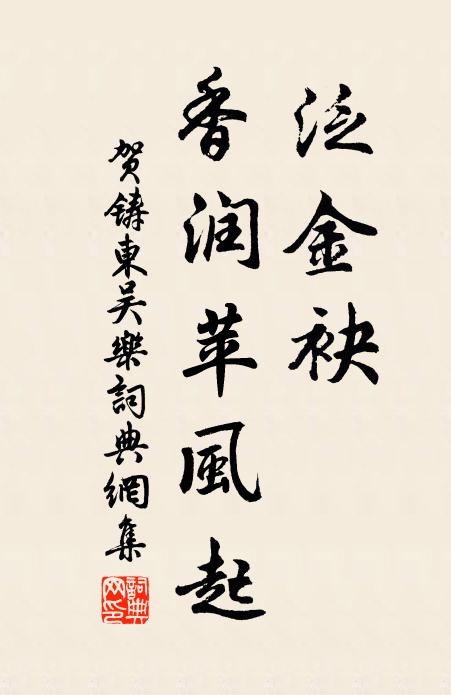 泛金袂
香润苹風起
贺鑄東吴樂詞典網集
詞典网印